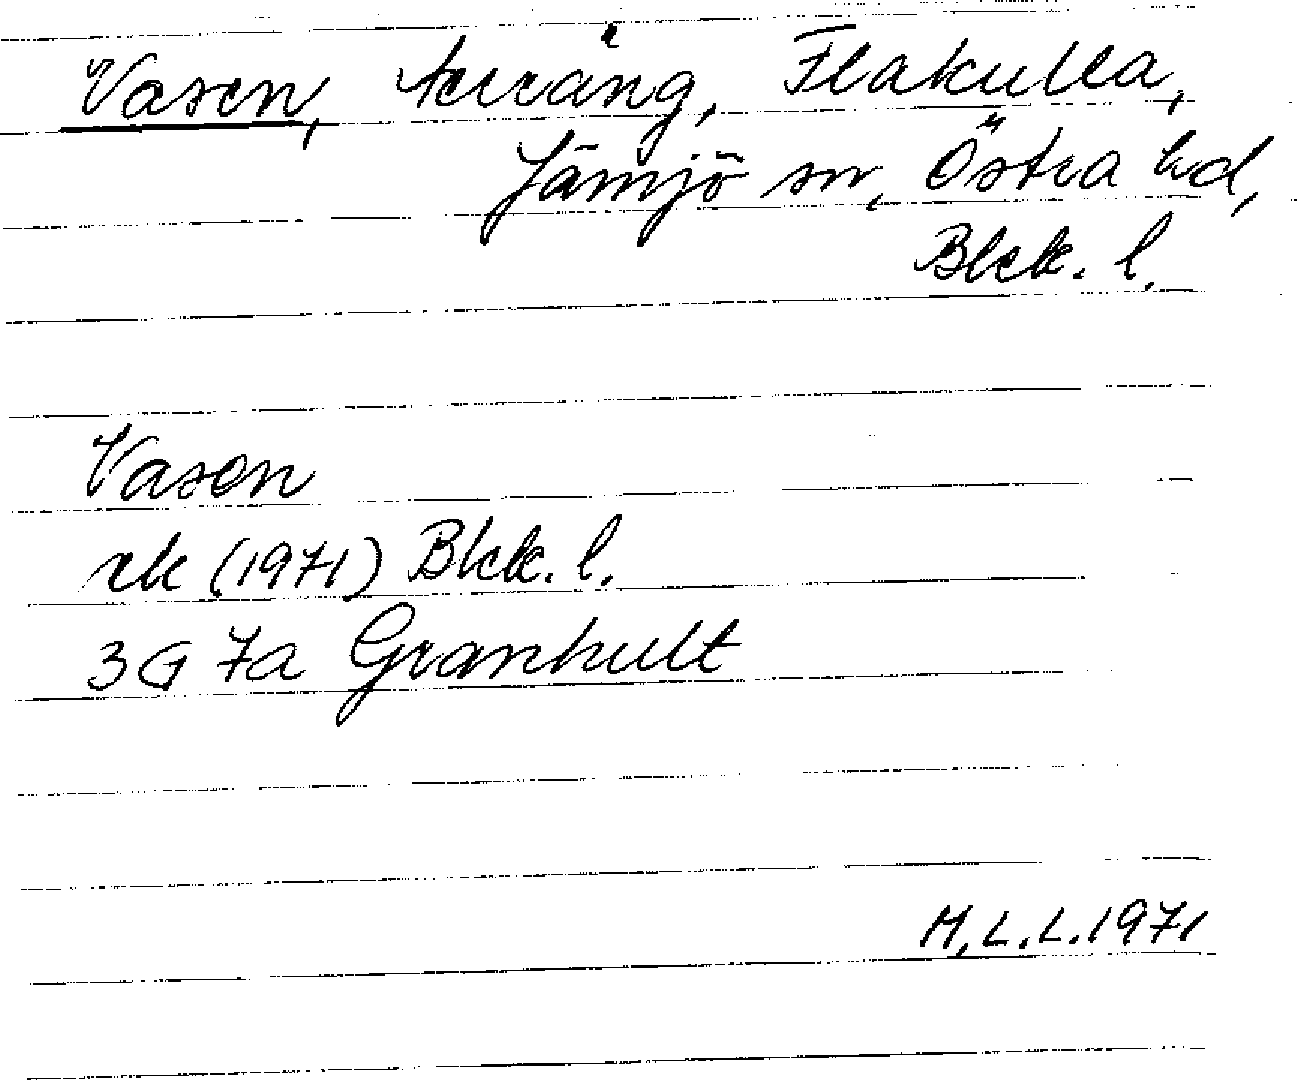 Vasen, terräng, Flakulla,
Jämjö sn, Östra hd,
Blek. l.
Vasen
rek (1971) Blek. l.
3G 7a Granhult
M.L.L. 1971